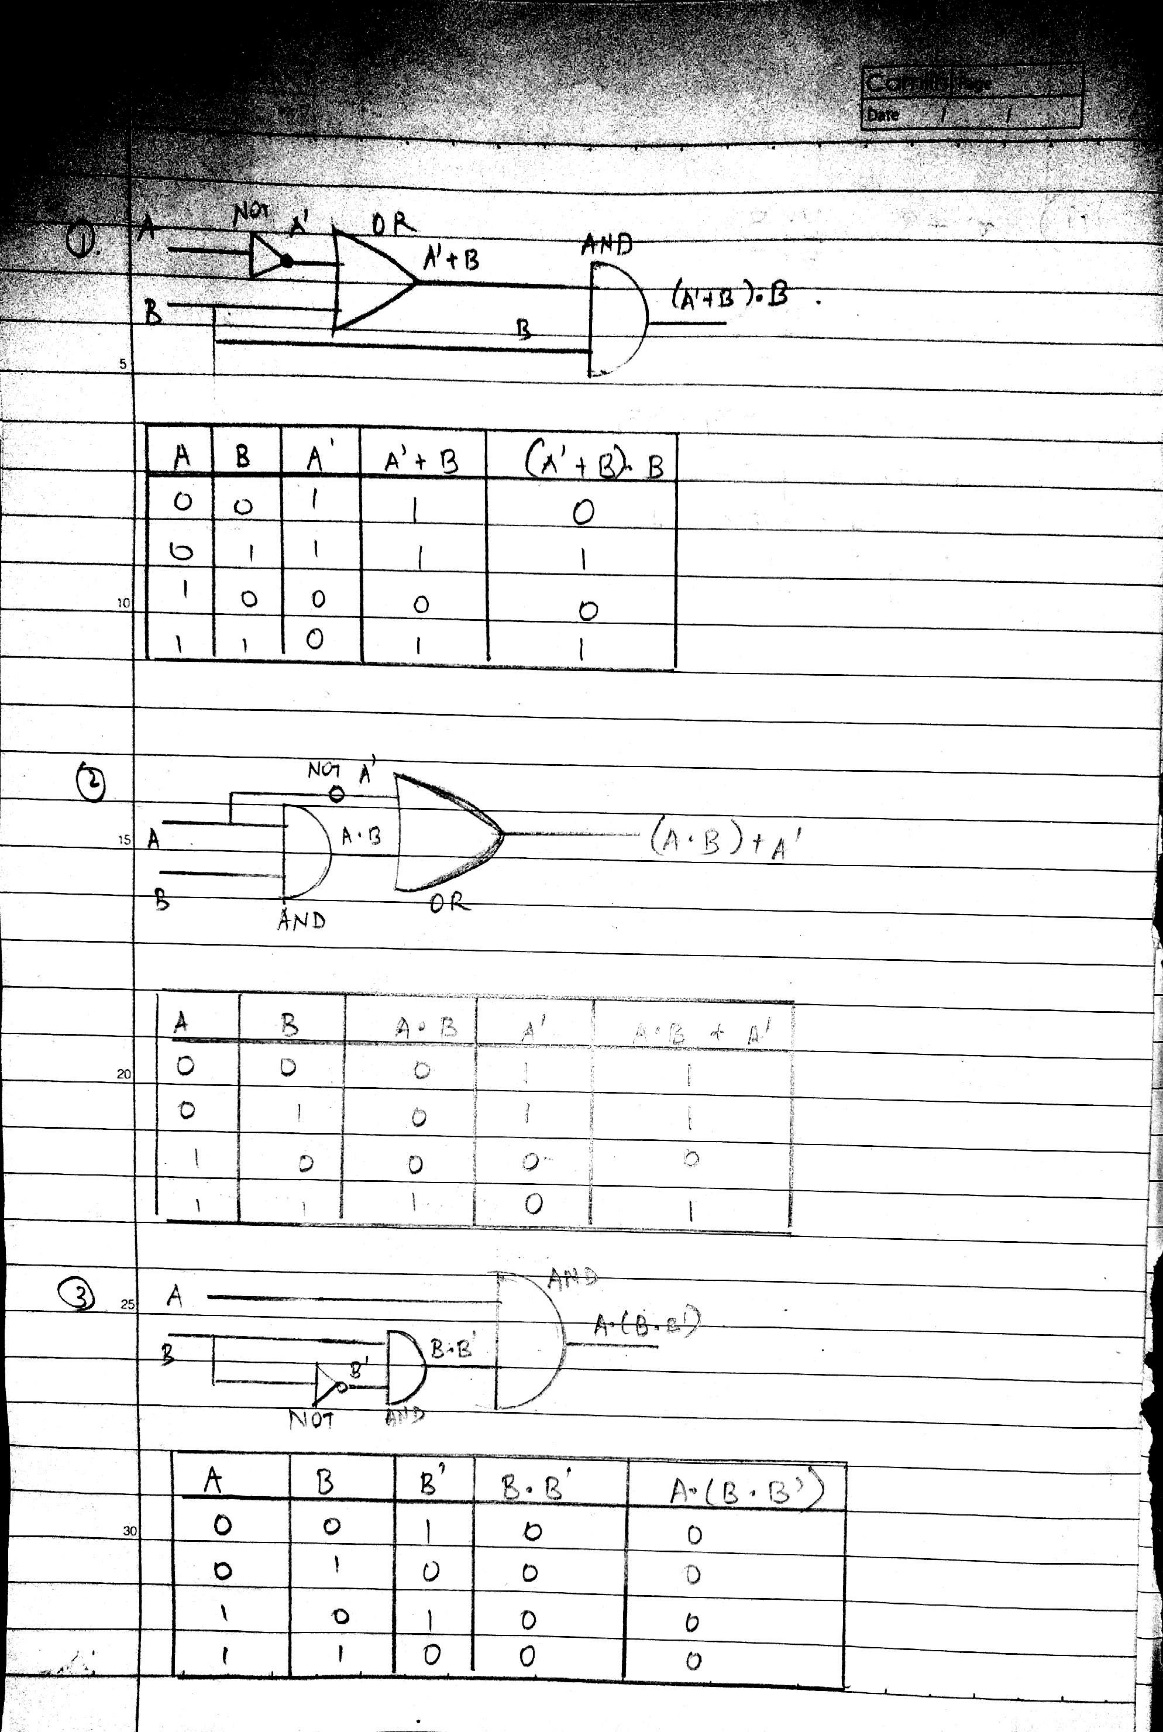 Camlin Page
Date / /
①. A NOT A' OR A'+B AND (A'+B).B .
B B
5
A B A' A'+B (A'+B).B
0 0 1 1 0
0 1 1 1 1
10 1 0 0 0 0
1 1 0 1 1
② NOT A'
15 A A.B (A.B)+A'
B AND OR
A B A.B A' A.B + A'
20 0 0 0 1 1
0 1 0 1 1
1 0 0 0 0
1 1 1 0 1
③ 25 A AND A.(B.B')
B B' B.B'
NOT AND
A B B' B.B' A.(B.B')
30 0 0 1 0 0
0 1 0 0 0
1 0 1 0 0
1 1 0 0 0